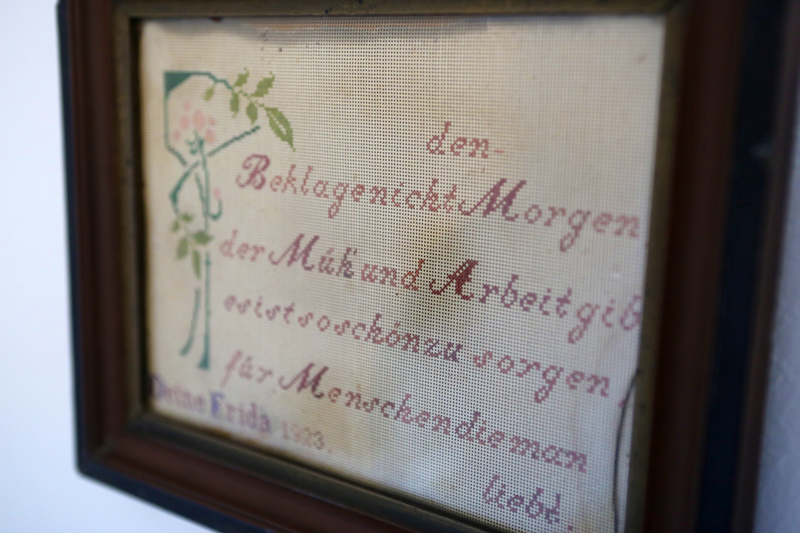 den-
Beklage nicht Morgen,
der Müh und Arbeit gib
es ist so schön zu sorgen,
für Menschen die man
liebt.
Deine Frida 1923.